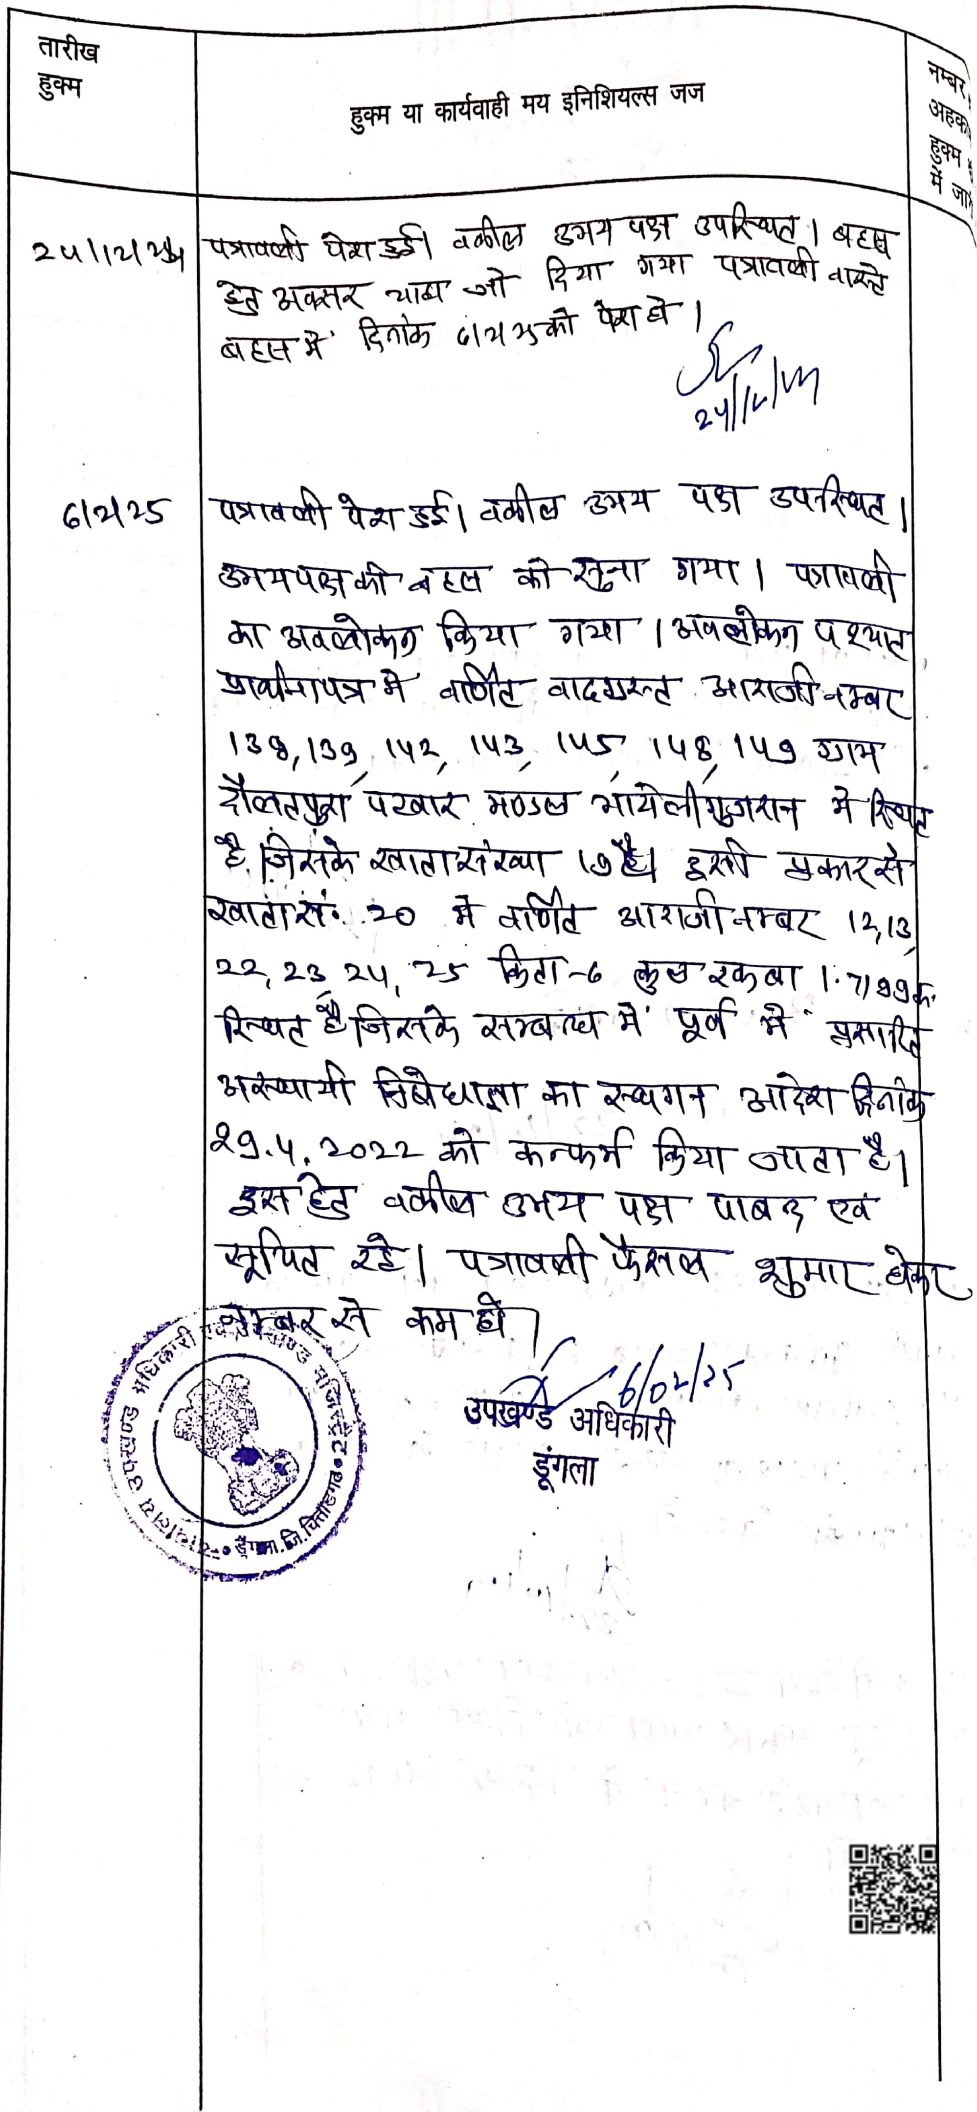 तारीख
हुक्म
हुक्म या कार्यवाही मय इनिशियल्स जज
नम्बर
अहक
हुक्म
में जा
24/12/24 पत्रावली पेश हुई। वकील उभय पक्ष उपस्थित। बहस
हेतु अवसर चाहा जो दिया गया पत्रावली वास्ते
बहस में दिनांक 6/2/25 को पेश हो।
24/12/24
6/2/25 पत्रावली पेश हुई। वकील उभय पक्ष उपस्थित।
उभयपक्ष की बहस को सुना गया। पत्रावली
का अवलोकन किया गया। अवलोकन पश्चात
प्रार्थनापत्र में वर्णित वादग्रस्त आराजी नम्बर
138, 139, 142, 143, 145, 148, 149 ग्राम
दौलतपुरा पटवार मण्डल भाटोली गुजरान में स्थित
है जिसके खाता संख्या 19 है। इसी प्रकार से
खाता सं. 20 में वर्णित आराजी नम्बर 12, 13,
22, 23, 24, 25 किता-6 कुल रकबा 1.7199 है.
स्थित है जिसके सम्बन्ध में पूर्व में प्रसारित
अस्थायी निषेधाज्ञा का स्थगन आदेश दिनांक
29.4.2022 को कन्फर्म किया जाता है।
इस हेतु वकील उभय पक्ष पाबन्द एवं
सूचित रहे। पत्रावली फैसल शुमार होकर
नम्बर से कम हो।
6/02/25
उपखण्ड अधिकारी
डूंगला
कार्यालय उपखण्ड अधिकारी एवं उपखण्ड मजिस्ट्रेट
डूंगला, जि. चित्तौड़गढ़